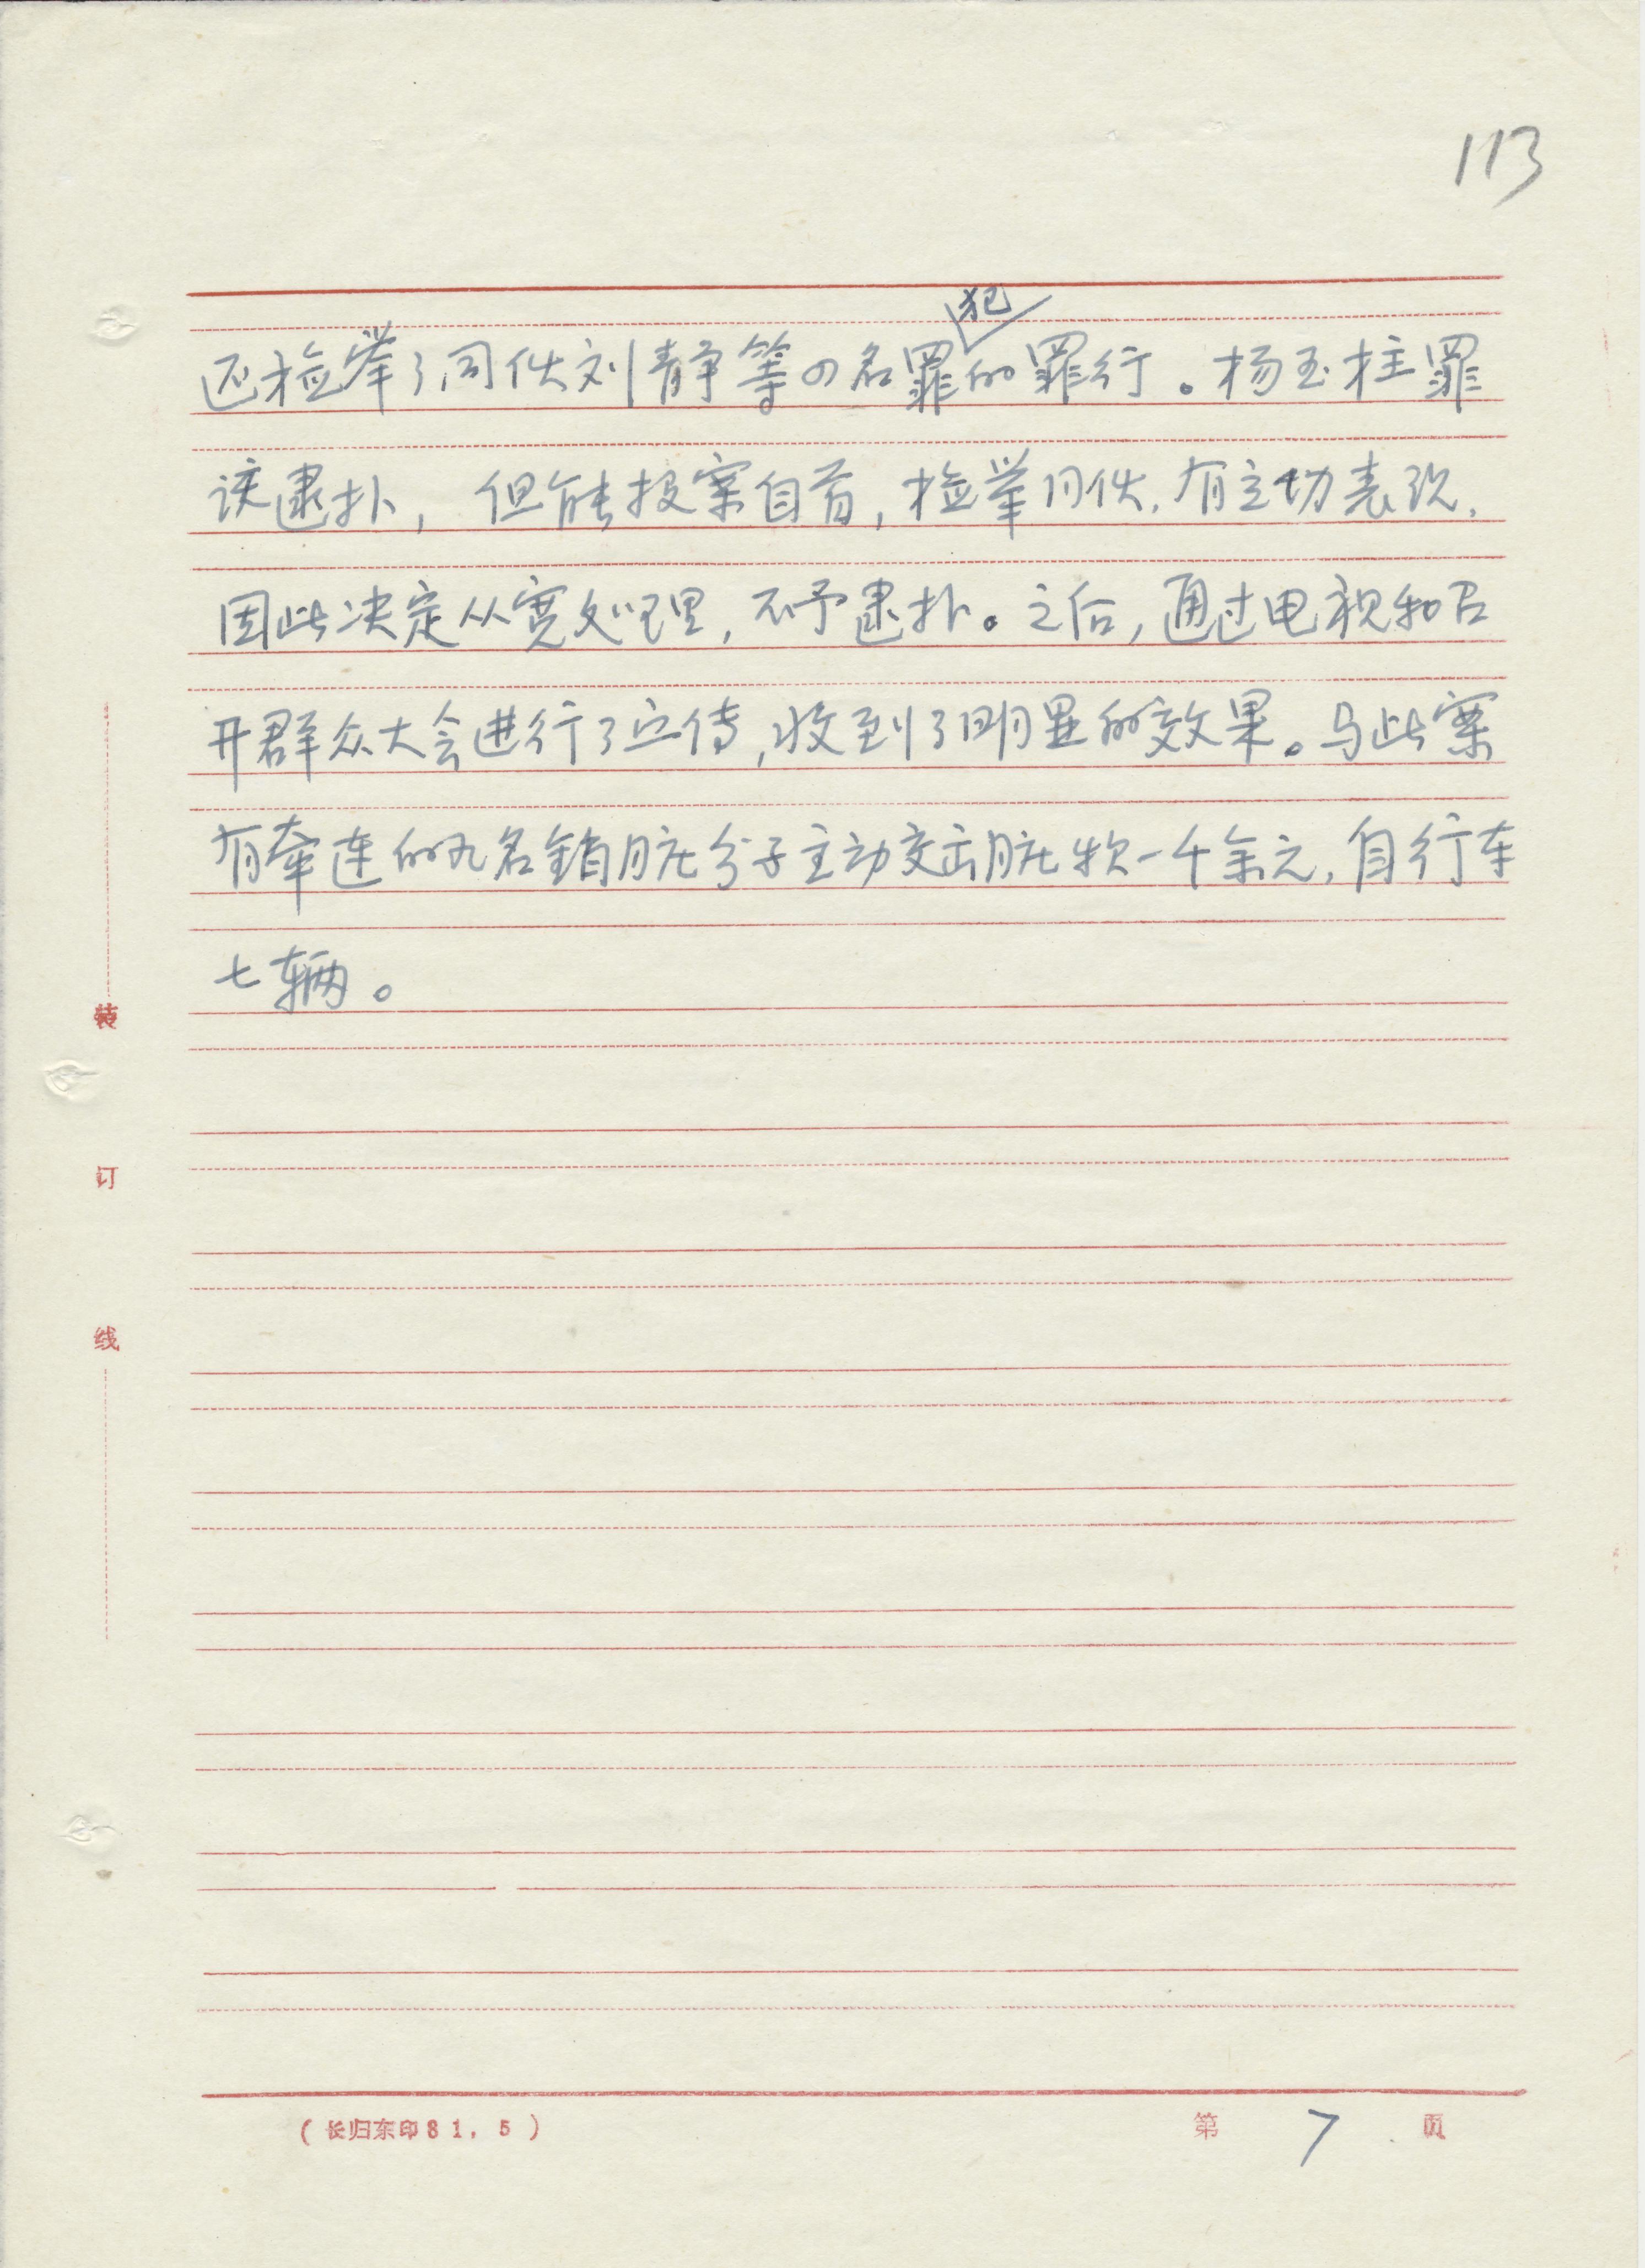 113
还检举了同伙刘静等四名罪犯的罪行。杨玉柱罪
该逮扑，但能投案自首，检举同伙，有立功表现，
因此决定从宽处理，不予逮扑。之后，通过电视和召
开群众大会进行了宣传，收到了明显的效果。与此案
有牵连的九名销脏分子主动交出脏款一千余元，自行车
七辆。
装
订
线
（长归东印81.5）
第 7 页